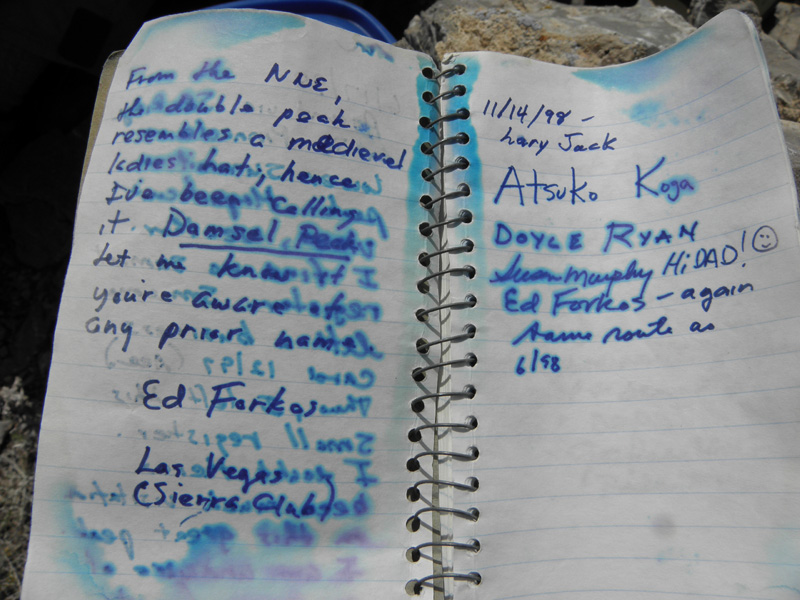 From the NNE,
the double peak
resembles a medieval
ladies hat; hence
I've been calling
it Damsel Peak
Let me know if
you're aware of
any prior name.
Ed Forkos
Las Vegas
(Sierra Club)
11/14/98 -
Lary Jack
Atsuko Koga
DOYLE RYAN
Susan Murphy Hi DAD! ☺
Ed Forkos - again
same route as
6/98